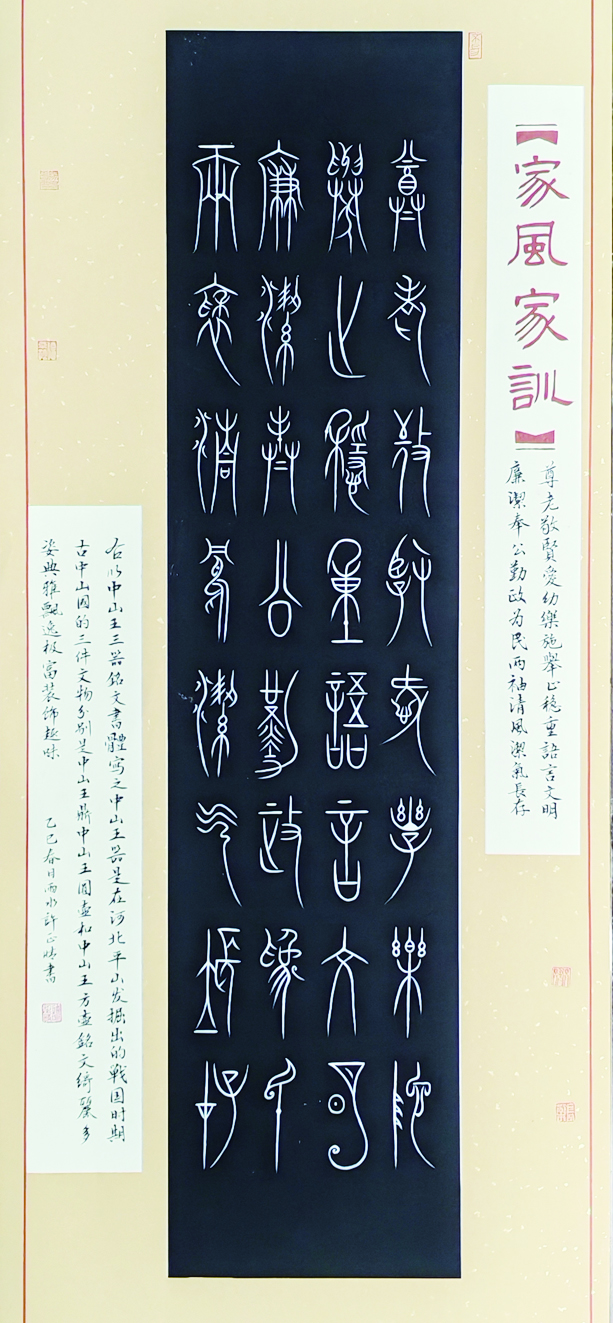 【家風家訓】
尊老敬賢愛幼樂施舉止稳重語言文明
廉潔奉公勤政为民两袖清風潔氣長存
尊老敬賢愛幼樂施
舉止穩重語言文明
廉潔奉公勤政為民
兩袖清風潔氣長存
右以中山王三器銘文書體寫之中山王器是在河北平山发掘出的戰国时期
古中山国的三件文物分别是中山王鼎中山王圆壶和中山王方壶銘文綺麗多
姿典雅飄逸极富装飾趣味 乙巳春日雨水許正晴書